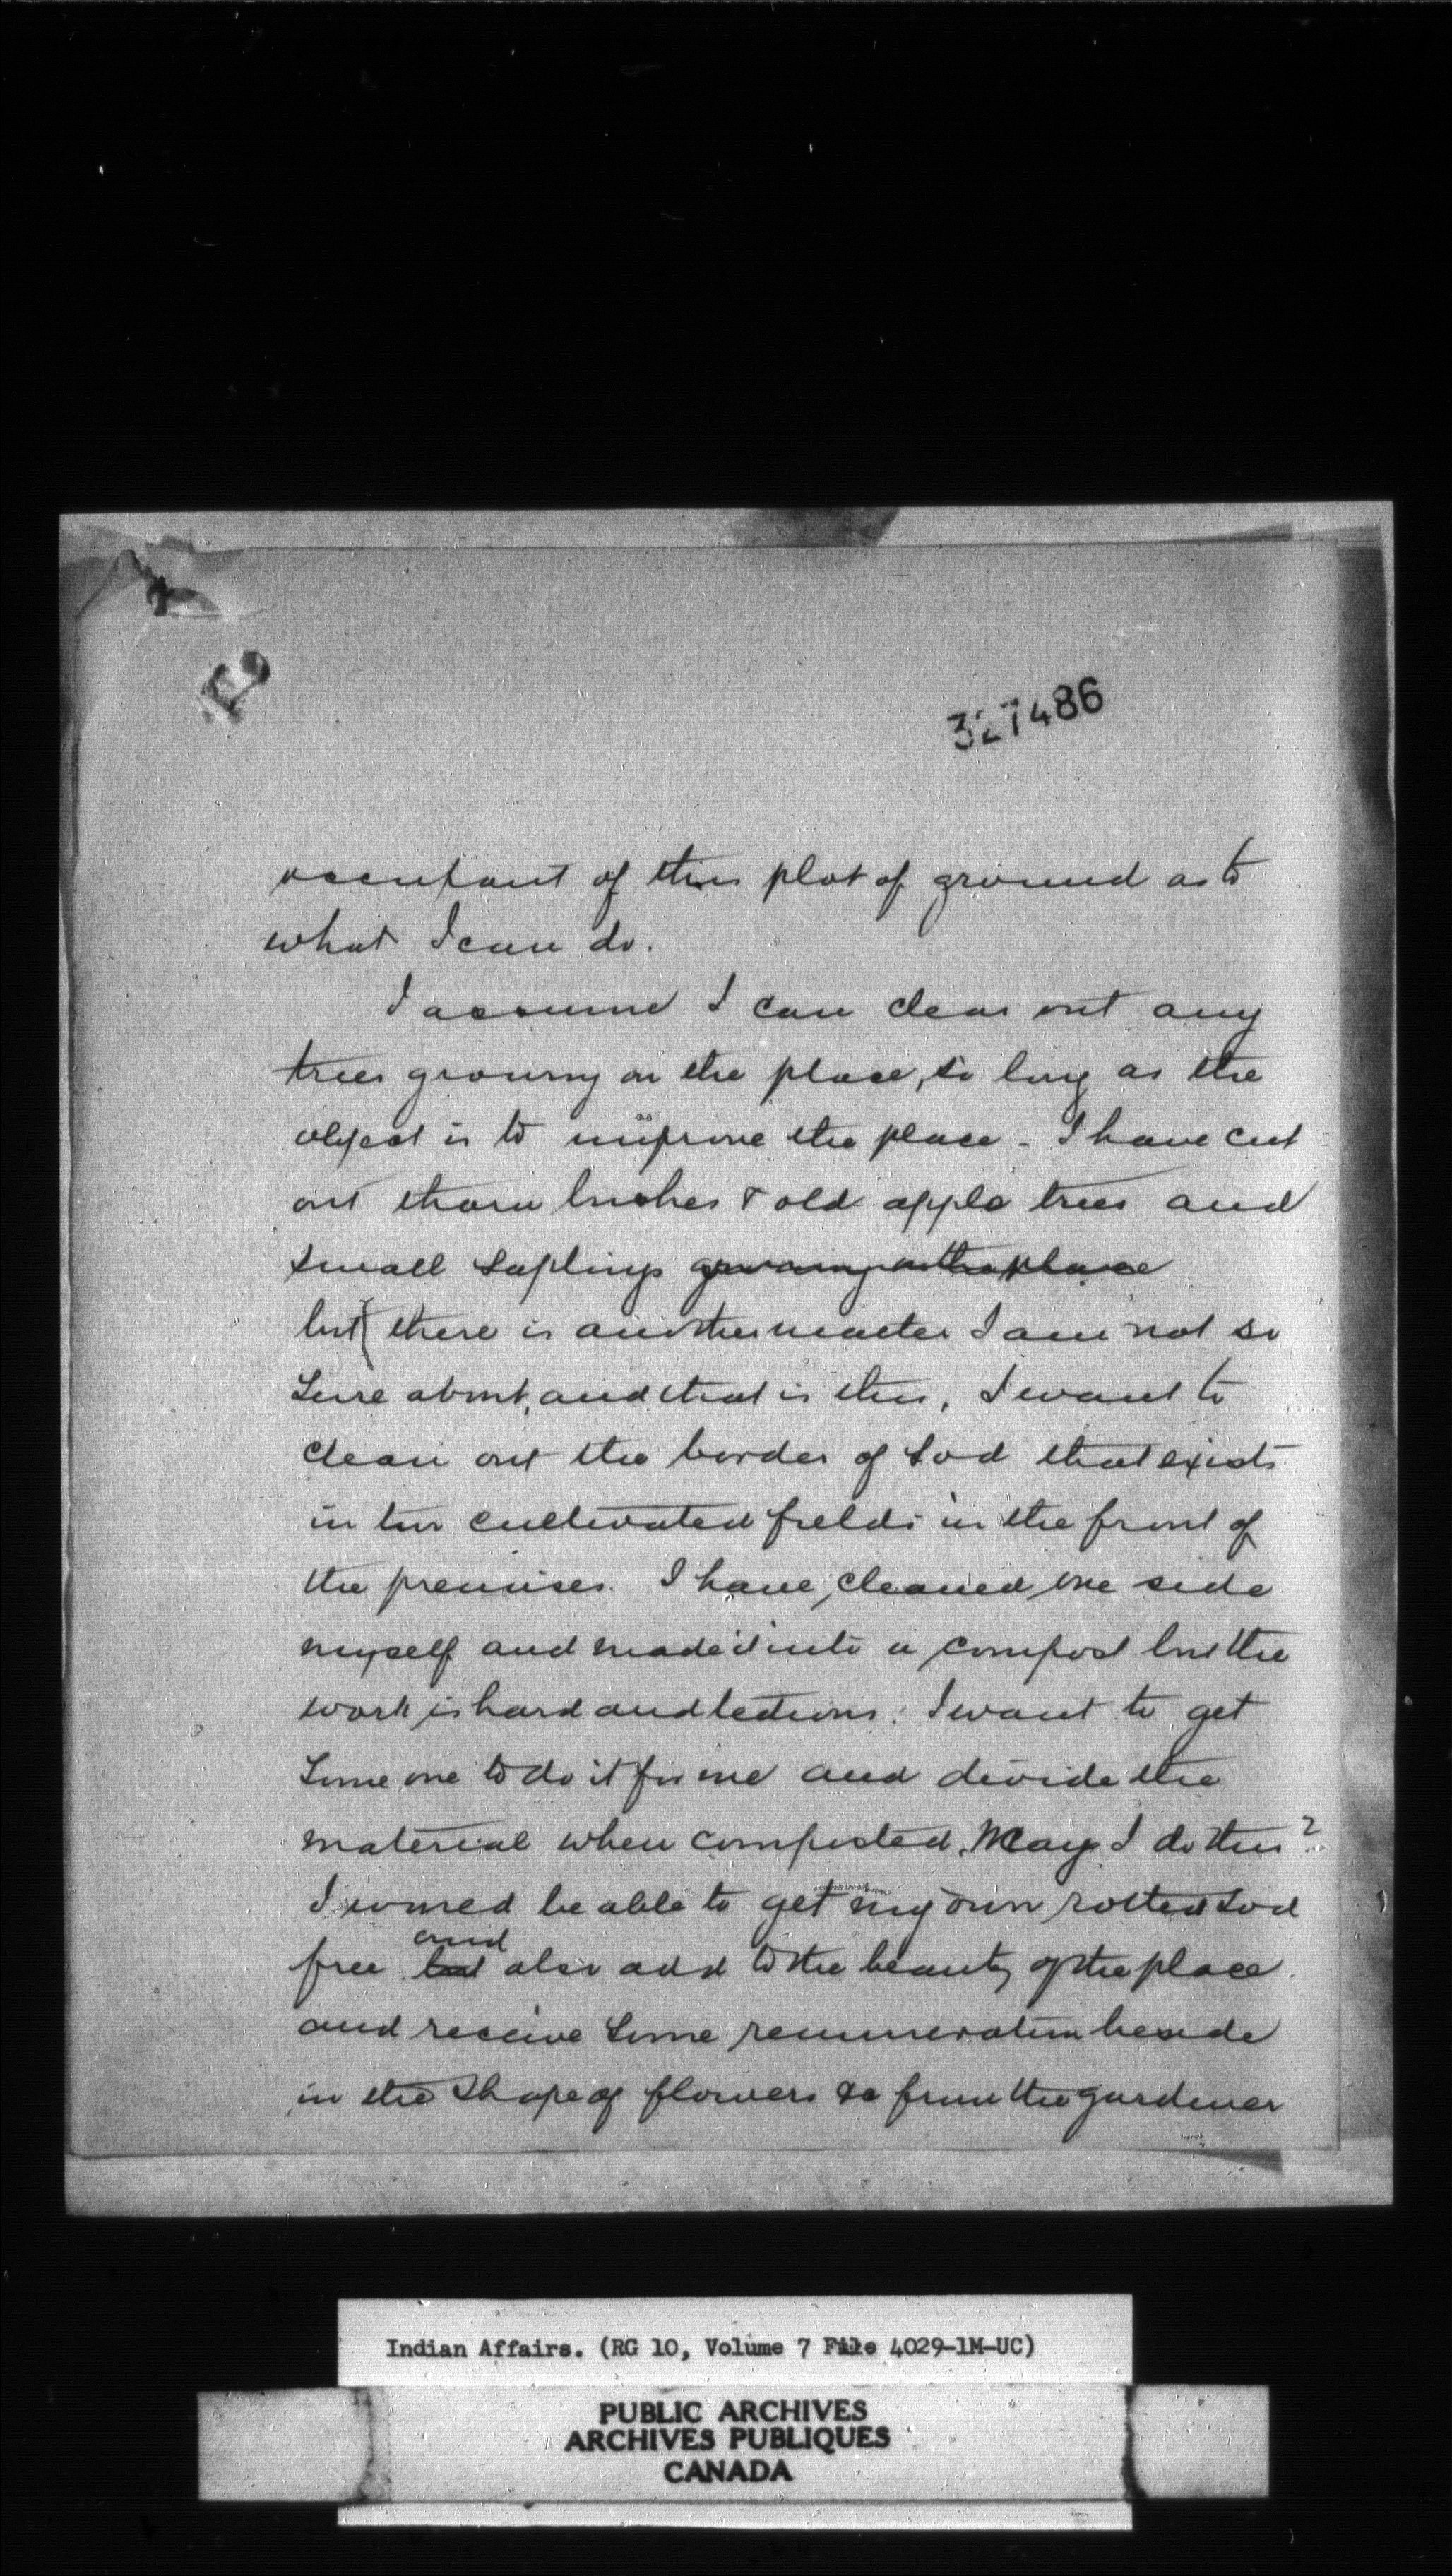 327486
occupant of this plot of ground as to
what I can do.
I assume I can clear out any
trees growing on the place, so long as the
object is to improve the place - I have cut
out thorn bushes & old apple trees and
small saplings growing on the place
but there is another matter I am not so
sure about, and that is this, I want to
clean out the border of sod that exists
in two cultivated fields in the front of
the premises. I have, cleaned one side
myself and made it into a compost but the
work is hard and tedious. I want to get
some one to do it for me and divide the
material when composted. May I do this?
I would be able to get my own rotted sod
and
free but also add to the beauty of the place
and receive some remuneration beside
in the shape of flowers &c from the gardener
Indian Affairs. (RG 10, Volume 7 File 4029-1M-UC)
PUBLIC ARCHIVES
ARCHIVES PUBLIQUES
CANADA